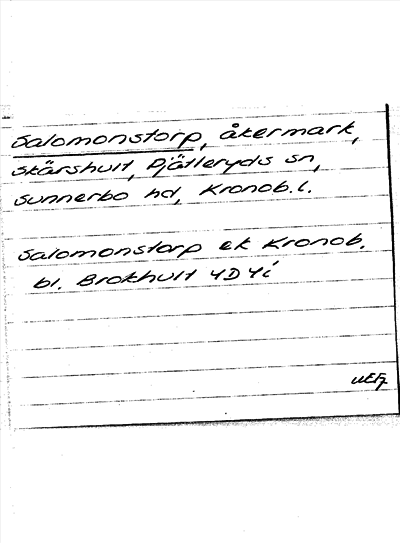 Salomonstorp, åkermark,
Skärshult, Pjätteryds sn,
Sunnerbo hd, Kronob. l.
Salomonstorp ek Kronob.
bl. Brokhult 4D 4i